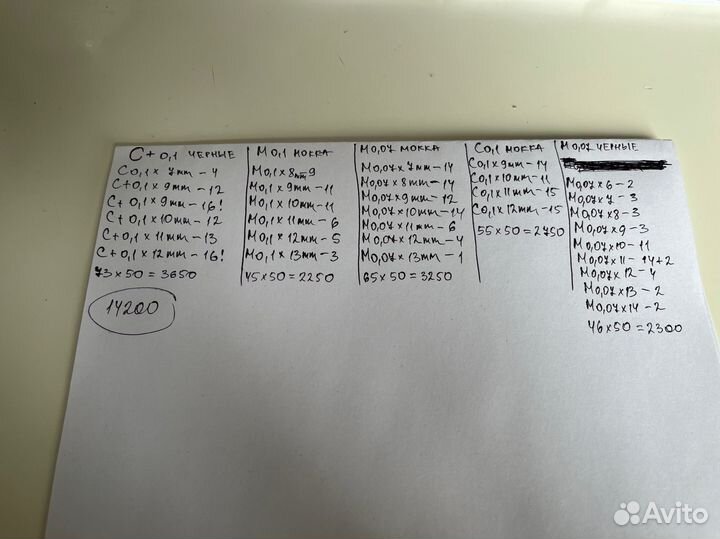 C+ 0,1 ЧЕРНЫЕ
C 0,1 x 7mm - 4
C+0,1 x 9mm - 12
C+ 0,1 x 9mm - 16!
C+ 0,1 x 10mm - 12
C+ 0,1 x 11mm - 13
C+ 0,1 x 12mm - 16!
73 x 50 = 3650
14200
M 0,1 МОККА
M0,1 x 8mm 9
M0,1 x 9mm - 11
M0,1 x 10mm - 11
M0,1 x 11mm - 6
M0,1 x 12mm - 5
M0,1 x 13mm - 3
45 x 50 = 2250
M0,07 МОККА
M0,07 x 7mm - 14
M0,07 x 8mm - 14
M0,07 x 9mm - 12
M0,07 x 10mm - 14
M0,07 x 11mm - 6
M0,07 x 12mm - 4
M0,07 x 13mm - 1
65 x 50 = 3250
C0,1 МОККА
C0,1 x 9mm - 14
C0,1 x 10mm - 11
C0,1 x 11mm - 15
C0,1 x 12mm - 15
55 x 50 = 2750
M0,07 ЧЕРНЫЕ
M0,07 x 6 - 2
M0,07 x 7 - 3
M0,07 x 8 - 3
M0,07 x 9 - 3
M0,07 x 10 - 11
M0,07 x 11 - 14+2
M0,07 x 12 - 4
M0,07 x 13 - 2
M0,07 x 14 - 2
46 x 50 = 2300
Avito